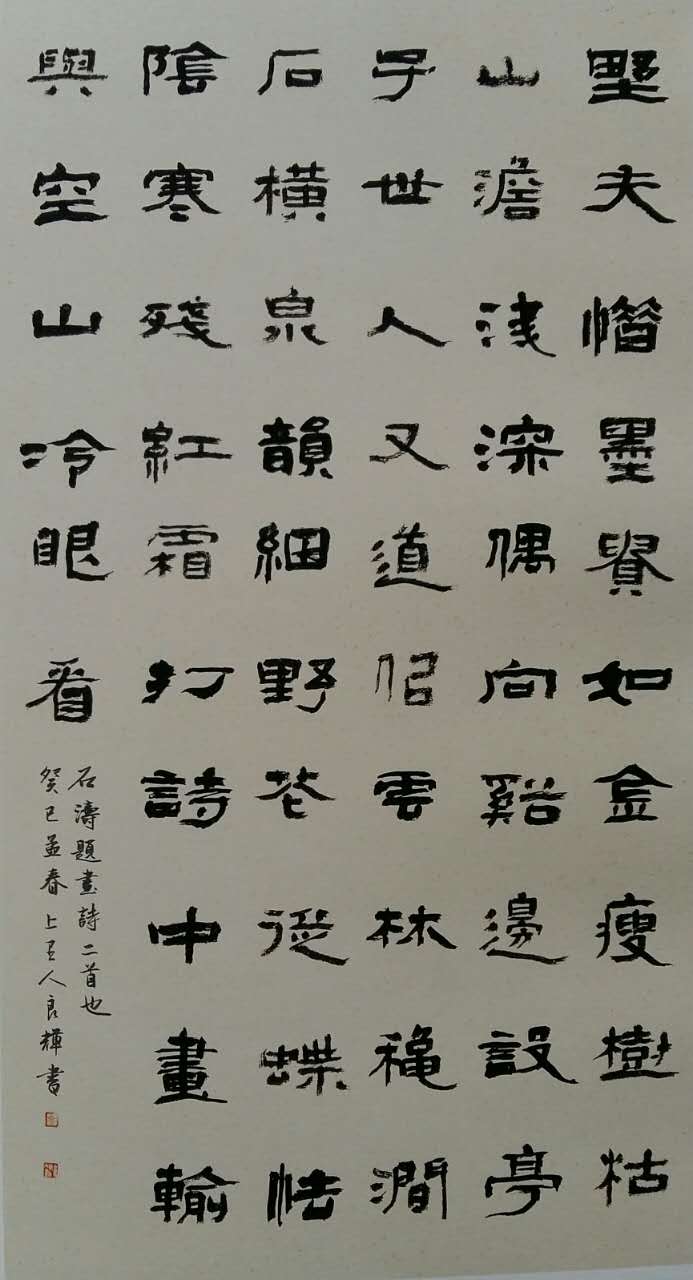 墅夫惜墨貴如金瘦樹枯
山澹淺深偶向谿邊設亭
子世人又道佀雲林穐澗
石橫泉韻細野花從蝶怯
陰寒殘紅霜打詩中畫輸
與空山冷眼看
石濤題畫詩二首也
癸巳孟春上人良輝書